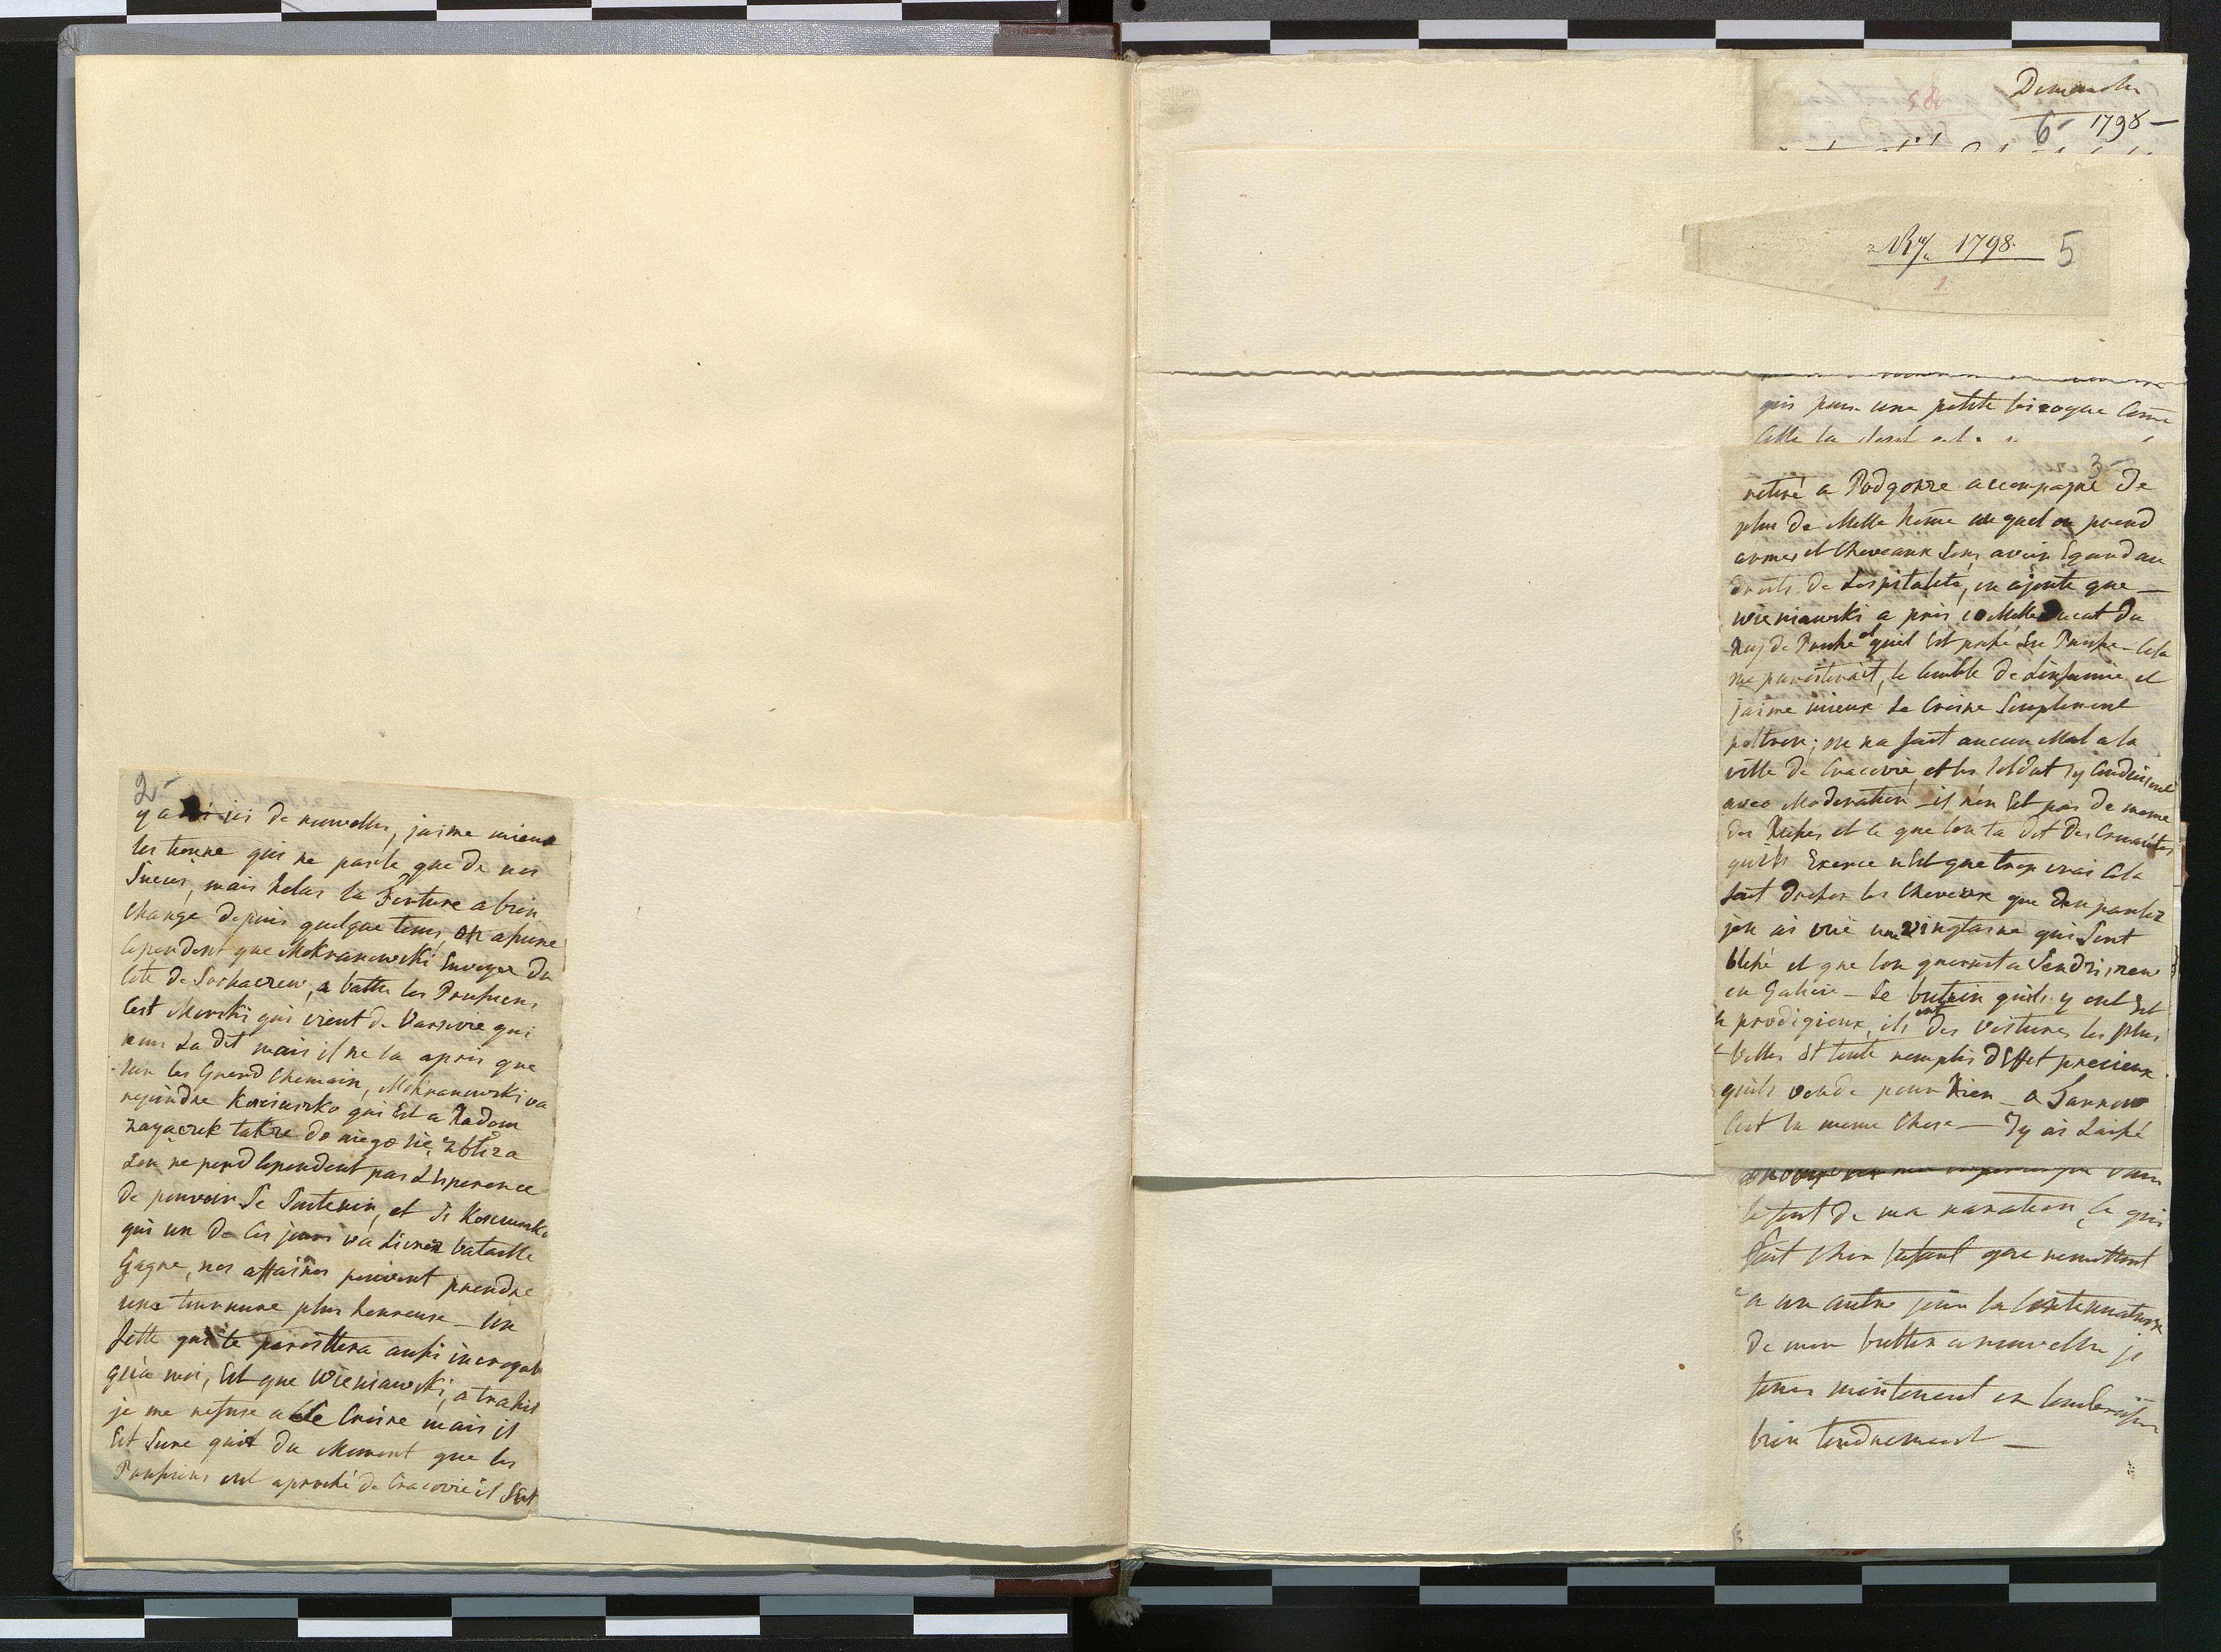 2
y a ici de nouvelles, jaime mieux
les tienne qui ne parle que de nos
Suces, mais helas la Fortune a bien
Change depuis quelque tems, on asure
Cependent que Mokranowski Envoyer du
Coté de Sochaczew, a battu les Prusiens
C'est Morski qui vient de Varsovie qui
nous La dit mais il ne la apris que
Sur les Grand Chemain, Mokranowski va
rejoindre Kosciuszko qui Est a Radom
Zayaczek takze do niego sie zbliza
Lon ne perd Cependent pas L'Esperence
de pouvoir Se Soutenir, et Si Kosciuszko
qui un de Ces jours va Livrez bataille
Gagne, nos affaires peuvent prendre
une tournure plus heureuse — Un
qui te paroittera ausi incroyab
qu'a moi, Est que Wieniawski, a trahit
je me refuse a le Croire mais il
Est Sure quit du Moment que les
Prusiens ont aproché de Cracovie il S'est
Dimanche
6 1798 —
1798. 5
1
qui pour une petite bicoque Come
3
retiré a Podgorze accompagné de
plus de Mille home au quel on prend
armes et Cheveaux Sans avoir Egard au
droits de Lospitalité, on ajoute que —
Wieniawski a pris 10 Mille Ducat du
Roy de Prusse et quil Est passé En Prusse — Cela
me paroitroit, le Comble de Linfamie, et
jaime mieux Le Croire Simplement
poltron; on na fait aucun Mal a la
ville de Cracovie, et les Soldat Sy Conduisent
avec Moderation — il n'en Est pas de meme
des Ruses et ce que lon ta dit des Cruautés
quils Exerce n'Est que trop vrai Cela
fait dreser les Cheveux que d'en parler
jen ai vue une vingtaine qui Sont
blesé et que lon a Sendriszew
en Galicie — Le butein quils y ont Est
prodigieux, ils ont des Voitures les plus
belles Et toute remplis d'Effet precieux
quils vende pour Rien — a Tarnow
C'est la meme Chose — Jy ai Laisé
le fout de ma naration, ce qui
fait Cher Enfant que remettent
a un autre jour la Continuation
de mon bulten a nouvelles je
tems mintenent en tembrasser
bien tendrement —